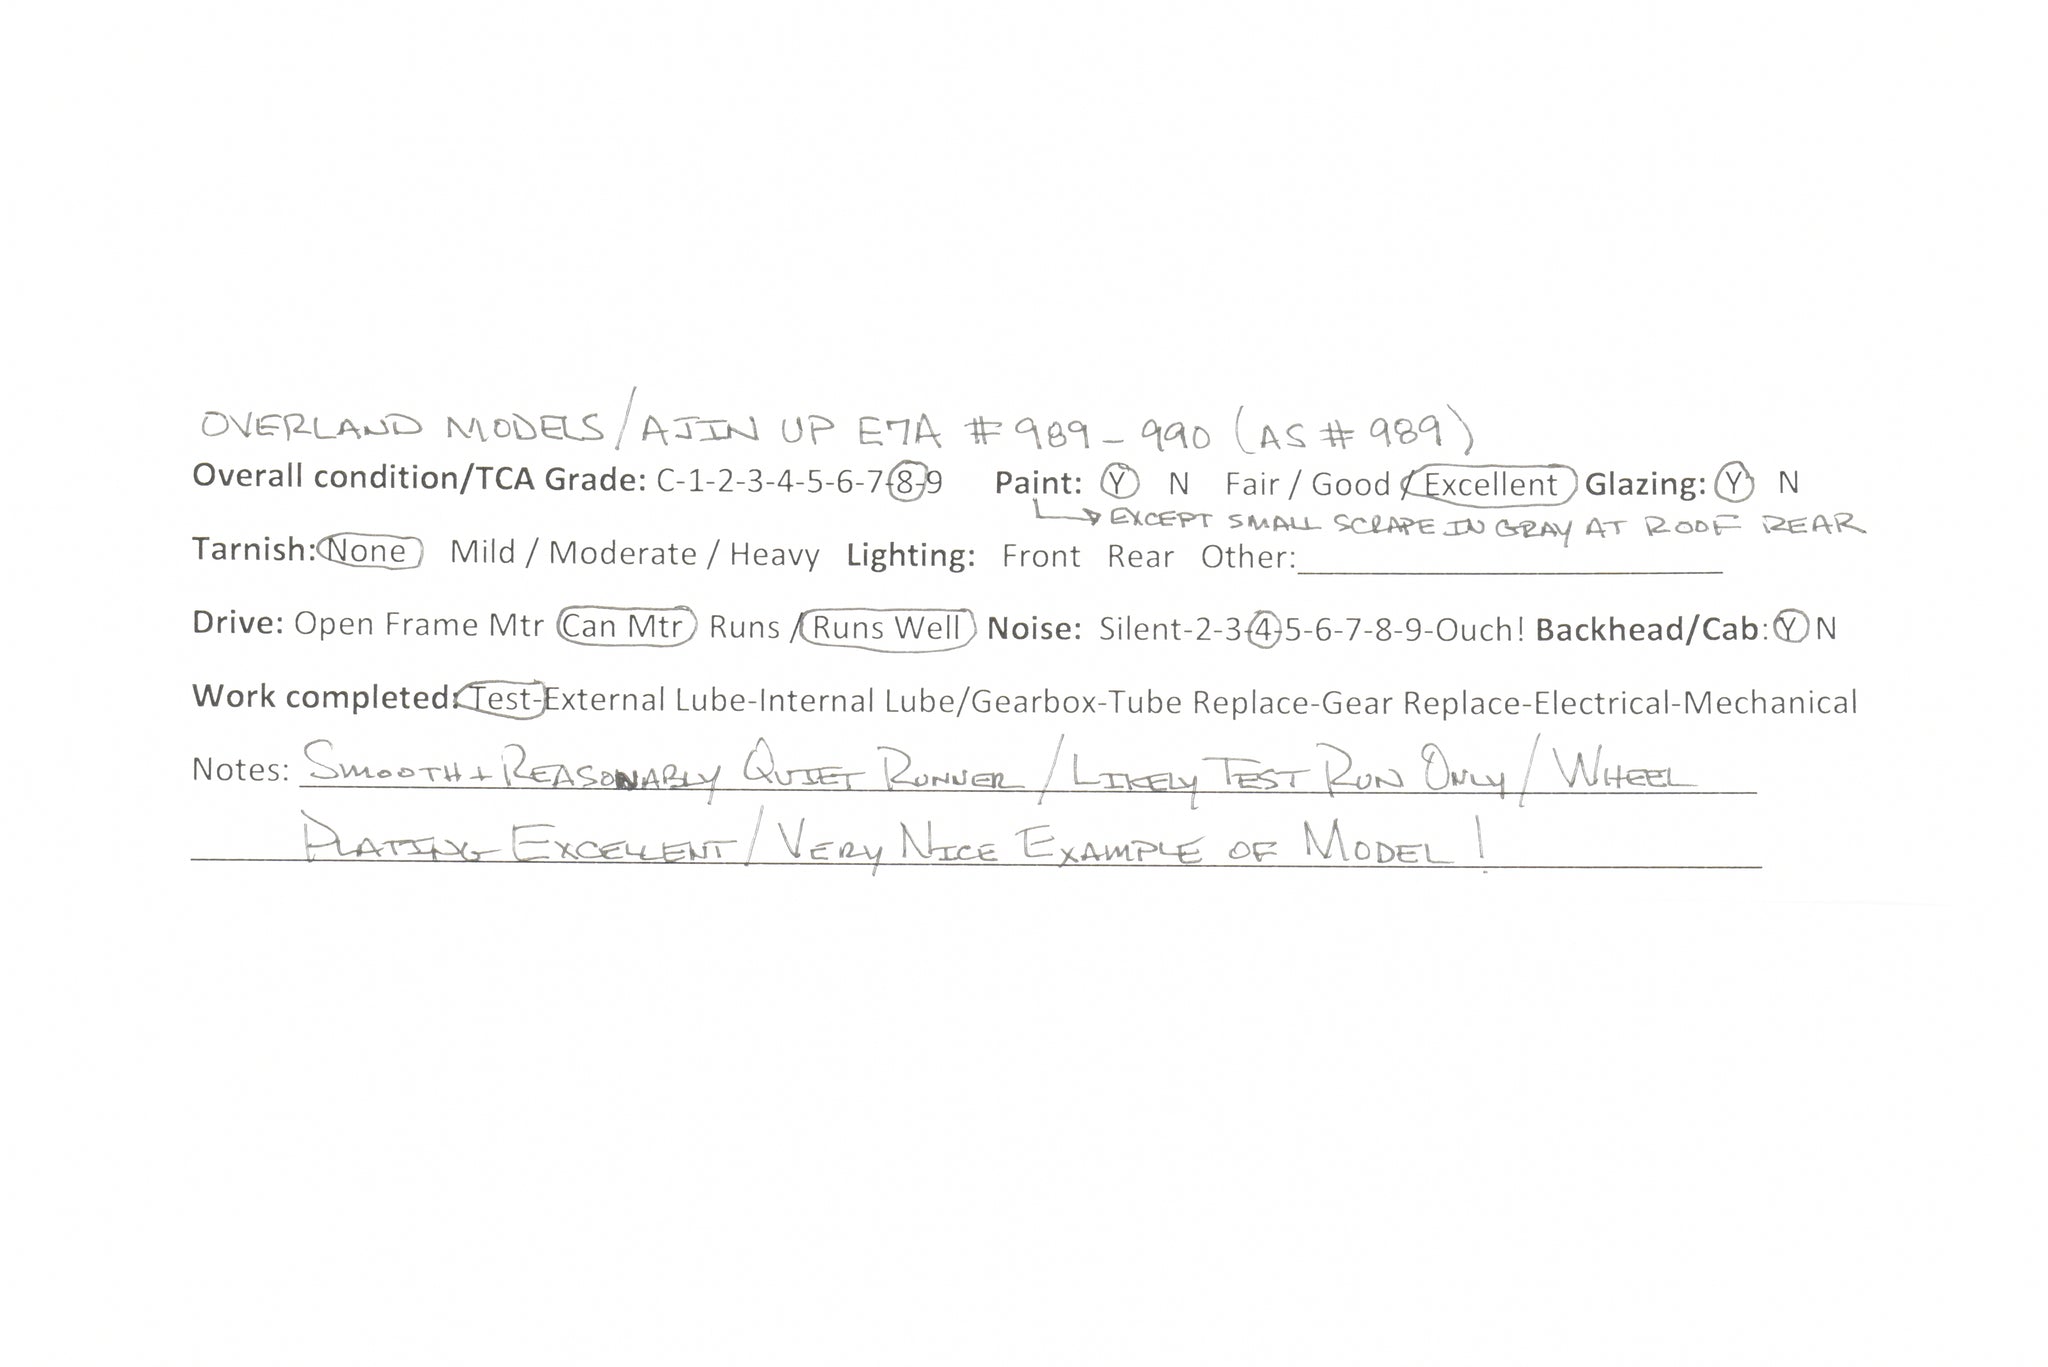 OVERLAND MODELS/AJIN UP E7A #989-990 (AS #989)
Overall condition/TCA Grade: C-1-2-3-4-5-6-7-8-9 Paint: Y N Fair / Good / Excellent Glazing: Y N
EXCEPT SMALL SCRAPE IN GRAY AT ROOF REAR
Tarnish: None Mild / Moderate / Heavy Lighting: Front Rear Other:
Drive: Open Frame Mtr Can Mtr Runs / Runs Well Noise: Silent-2-3-4-5-6-7-8-9-Ouch! Backhead/Cab: Y N
Work completed: Test-External Lube-Internal Lube/Gearbox-Tube Replace-Gear Replace-Electrical-Mechanical
Notes: SMOOTH + REASONABLY QUIET RUNNER / LIKELY TEST RUN ONLY / WHEEL
PLATING EXCELLENT / VERY NICE EXAMPLE OF MODEL!